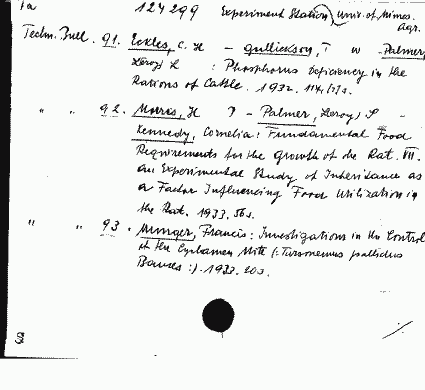 124299 Experiment Station, Univ. of Minnes.
Agr.
Techn. Bull. 91. Eckles, C. H - Gullickson, T W - Palmer,
Leroy S : Phosphorus Deficiency in the
Rations of Cattle. 1932.
" " 92. Morris, H P - Palmer, Leroy S -
Kennedy, Cornelia: Fundamental Food
Requirements for the Growth of the Rat. VII.
An Experimental Study of Inheritance as
a Factor Influencing Food Utilization in
the Rat. 1933. 56 s.
" " 93. Munger, Francis: Investigations in the Control
of the Cyclamen Mite (: Tarsonemus pallidus
Banks :). 1933. 20 s.